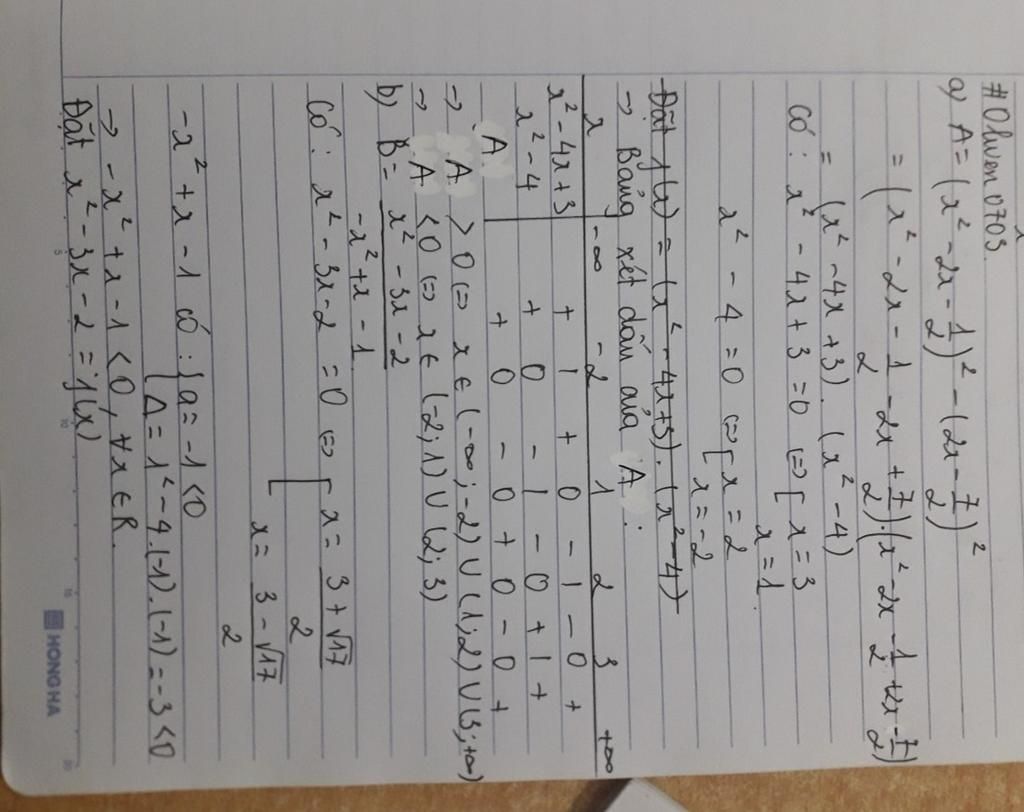 #Oliven0703.
a) A = (x² - 2x - 1/2)² - (2x - 7/2)²
= (x² - 2x - 1/2 - 2x + 7/2).(x² - 2x - 1/2 + 2x - 7/2)
= (x² - 4x + 3).(x² - 4)
Có : x² - 4x + 3 = 0 ⇔ [ x = 3
x = 1
x² - 4 = 0 ⇔ [ x = 2
x = -2
Đặt f(x) = (x² - 4x + 3).(x² - 4)
→ Bảng xét dấu của A :
x -∞ -2 1 2 3 +∞
x² - 4x + 3 + | + 0 - | - 0 +
x² - 4 + 0 - | - 0 + | +
A + 0 - 0 + 0 - 0 +
→ A > 0 ⇔ x ∈ (-∞; -2) ∪ (1; 2) ∪ (3; +∞)
→ A < 0 ⇔ x ∈ (-2; 1) ∪ (2; 3)
b) B = x² - 3x - 2
-x² + x - 1
Có : x² - 3x - 2 = 0 ⇔ [ x = 3 + √17
2
x = 3 - √17
2
-x² + x - 1 có : { a = -1 < 0
Δ = 1² - 4.(-1).(-1) = -3 < 0
→ -x² + x - 1 < 0, ∀x ∈ R.
Đặt x² - 3x - 2 = f(x)
HONG HA
5 10 15 20